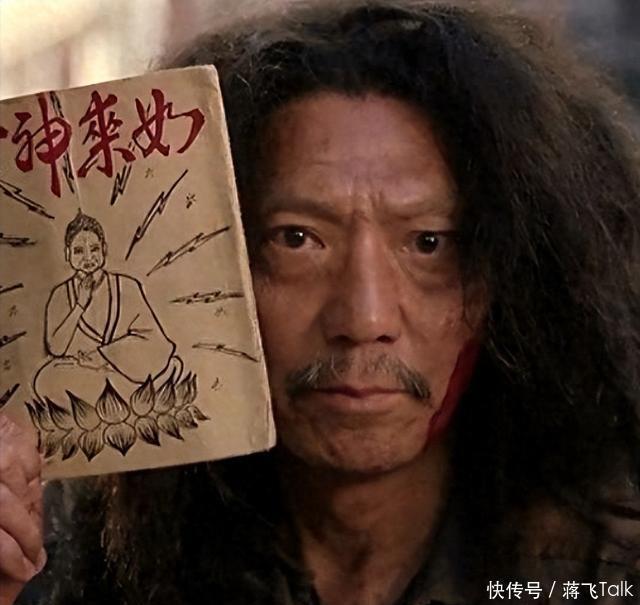 如來神
快传号 / 蒋飞Talk